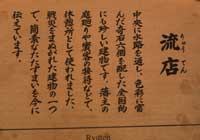 流店
りゅうてん
中央に水路を通し、色彩に富
んだ奇石六個を配した全国的
にも珍しい建物です。藩主の
庭廻りや賓客の接待などで、
休憩所として使われました。
戦災をまぬがれた建物の一つ
で、簡素なたたずまいを今に
伝えています。
Ryuten